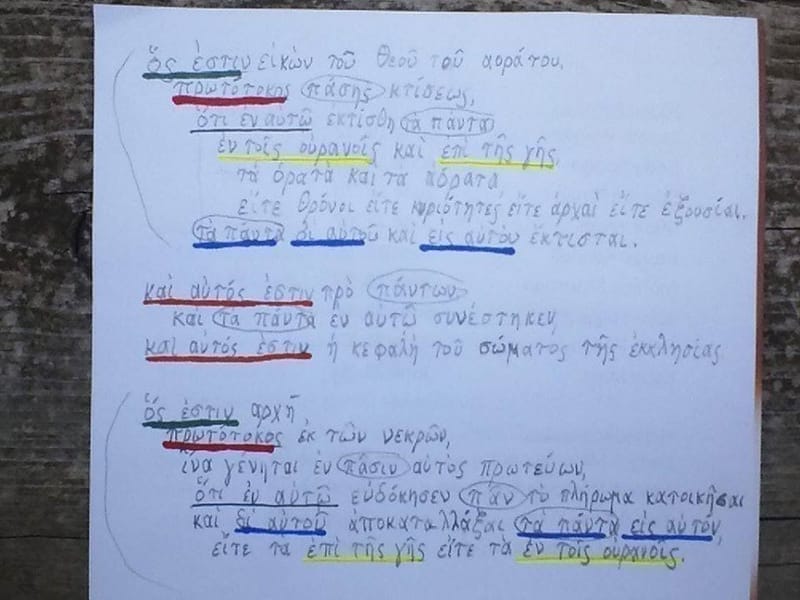 ὅς ἐστιν εἰκὼν τοῦ θεοῦ τοῦ ἀοράτου,
πρωτότοκος πάσης κτίσεως,
ὅτι ἐν αὐτῷ ἐκτίσθη τὰ πάντα
ἐν τοῖς οὐρανοῖς καὶ ἐπὶ τῆς γῆς,
τὰ ὁρατὰ καὶ τὰ ἀόρατα,
εἴτε θρόνοι εἴτε κυριότητες εἴτε ἀρχαὶ εἴτε ἐξουσίαι.
τὰ πάντα δι αὐτοῦ καὶ εἰς αὐτὸν ἔκτισται.
καὶ αὐτός ἐστιν πρὸ πάντων
καὶ τὰ πάντα ἐν αὐτῷ συνέστηκεν,
καὶ αὐτός ἐστιν ἡ κεφαλὴ τοῦ σώματος τῆς ἐκκλησίας
ὅς ἐστιν ἀρχή
πρωτότοκος ἐκ τῶν νεκρῶν,
ἵνα γένηται ἐν πᾶσιν αὐτὸς πρωτεύων,
ὅτι ἐν αὐτῷ εὐδόκησεν πᾶν τὸ πλήρωμα κατοικῆσαι
καὶ δι αὐτοῦ ἀποκαταλλάξαι τὰ πάντα εἰς αὐτόν,
εἴτε τὰ ἐπὶ τῆς γῆς εἴτε τὰ ἐν τοῖς οὐρανοῖς.